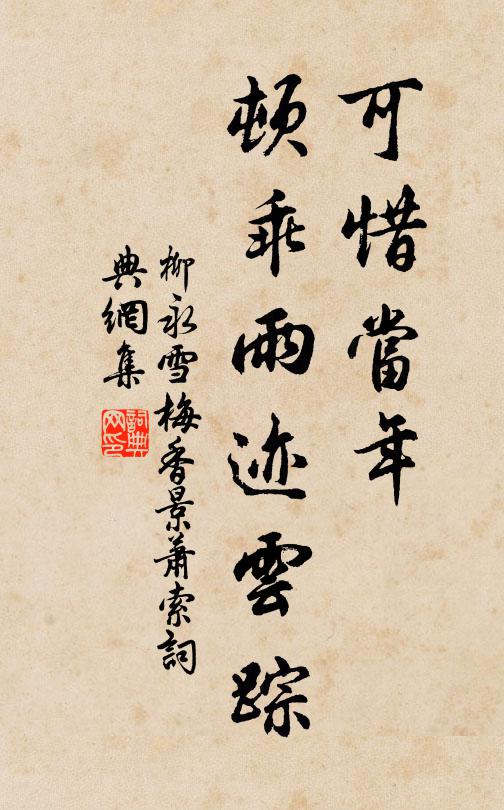 可惜當年
頓乖雨迹雲踪
柳永雪梅香景蕭索詞
典網集
詞典網印